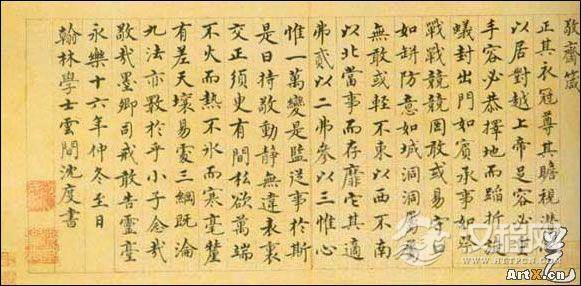 敬齋箴
正其衣冠尊其瞻視潛
以居對越上帝足容必重
手容必恭擇地而蹈折旋
蟻封出門如賓承事如祭
戰戰兢兢罔敢或易守口
如缾防意如城洞洞屬屬
無敢或輕不東以西不南
以北當事而存靡它其適
弗貳以二弗參以三惟心
惟一萬變是監從事於斯
是曰持敬動靜無違表裏
交正須臾有間私欲萬端
不火而熱不冰而寒毫釐
有差天壤易處三綱既淪
九法亦斁於乎小子念哉
敬哉墨卿司戒敢告靈臺
永樂十六年仲冬至日
翰林學士雲間沈度書
ArtX.cn